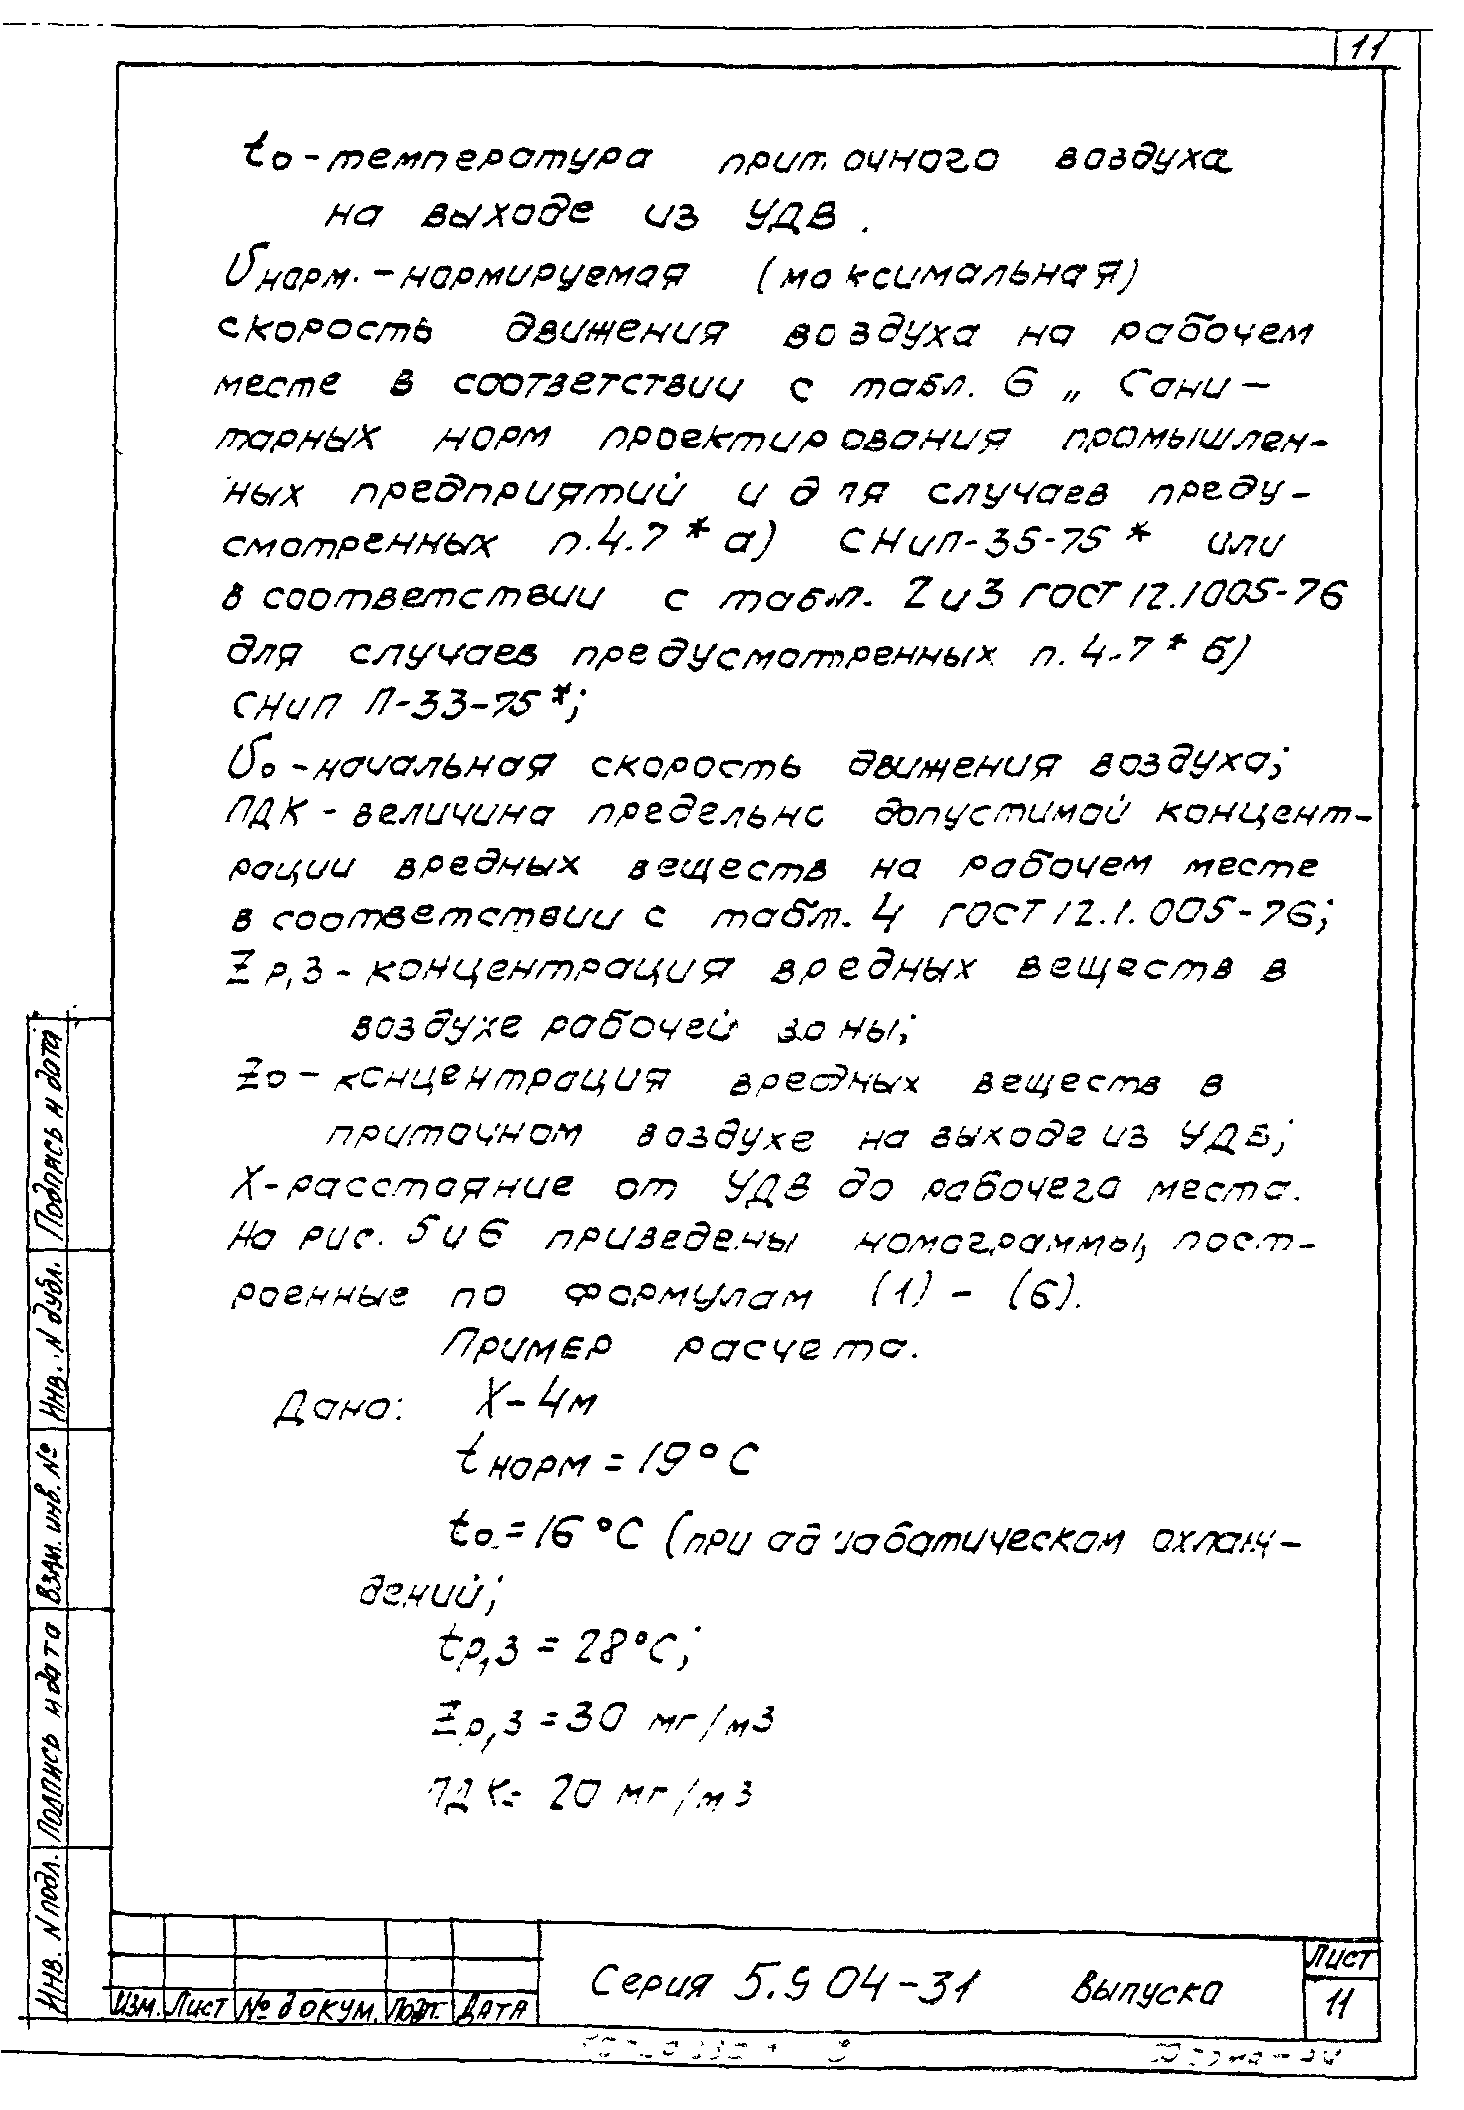 11
to-температура приточного воздуха
на выходе из УДВ.
Uнорм.-нормируемая (максимальная)
скорость движения воздуха на рабочем
месте в соответствии с табл. 6 „ Сани-
тарных норм проектирования промышлен-
ных предприятий и для случаев преду-
смотренных п.4.7* а) СНиП-35-75* или
в соответствии с табл. 2 и 3 ГОСТ 12.1005-76
для случаев предусмотренных п. 4.7* б)
СНиП П-33-75*;
Uо-начальная скорость движения воздуха;
ПДК - величина предельно допустимой концент-
рации вредных веществ на рабочем месте
в соответствии с табл. 4 ГОСТ 12.1.005-76;
Zр,з-концентрация вредных веществ в
воздухе рабочей зоны;
Zо-концентрация вредных веществ в
приточном воздухе на выходе из УДВ;
X-расстояние от УДВ до рабочего места.
На рис. 5 и 6 приведены номограммы, пост-
роенные по формулам (1) - (6).
Пример расчета.
Дано: X-4м
tнорм = 19°С
to = 16°С (при адиабатическом охлаж-
дений;
tр,з = 28°С;
Zр,з = 30 мг/м3
ПДК = 20 мг/м3
Инв. N подл. Подпись и дата Взам. инв. № Инв. N дубл. Подпись и дата
Изм. Лист № докум. Подп. Дата
Серия 5.904-31 Выпуска
Лист
11